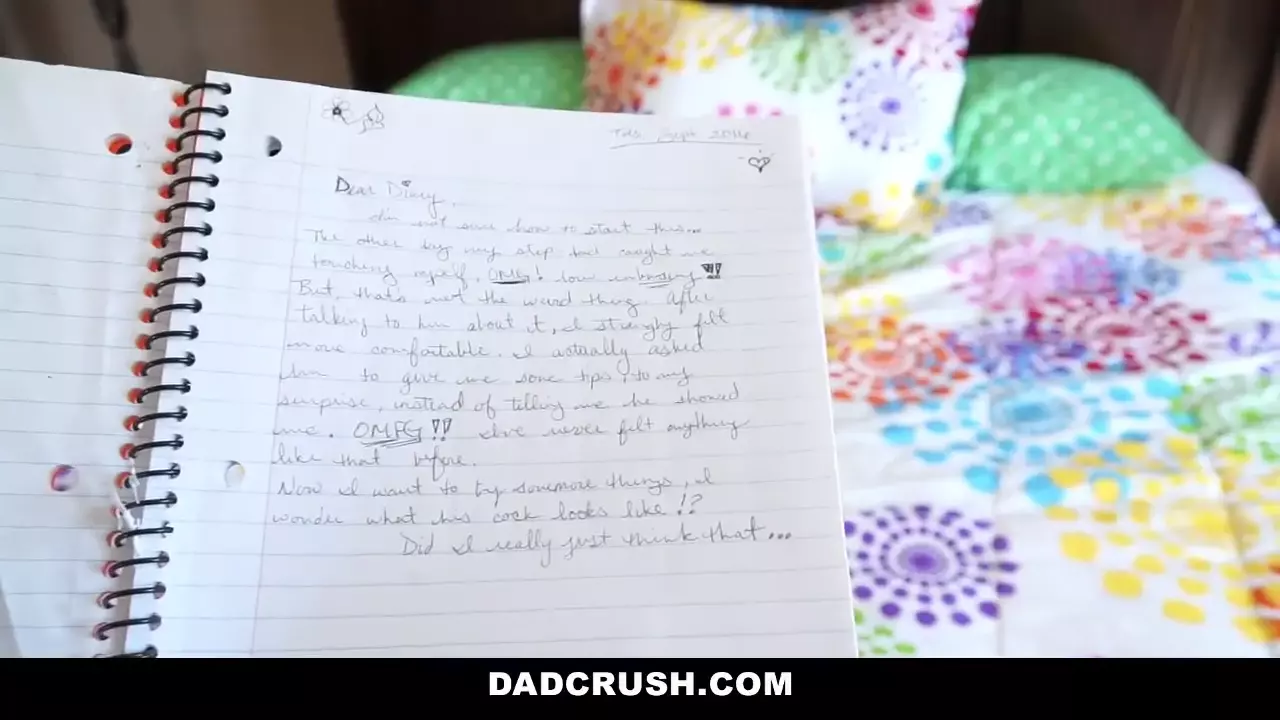 Dear Diary,
I'm not sure how to start this...
The other day my step dad caught me
touching myself, OMG! so
But, thats not the weird thing. After
talking to him about it, I strangly felt
more comfortable. I actually asked
him to give me some tips, to my
surprise, instead of telling me he showed
me. OMFG!! Ive never felt anything
like that before.
Now I want to try somemore things, I
wonder what his cock looks like!?
Did I really just think that...
DADCRUSH.COM